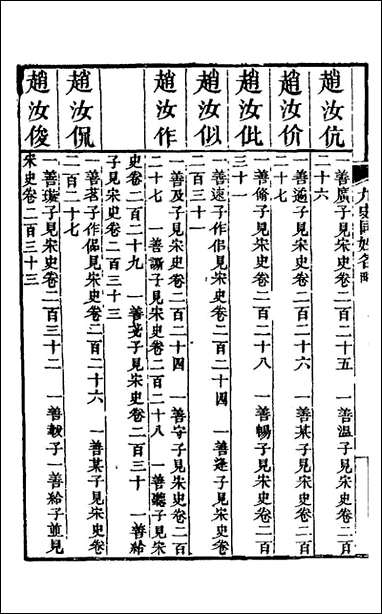 九史同姓名略
趙汝伉
一善廣子見宋史卷二百二十五 一善溫子見宋史卷二百
二十六
趙汝价
一善遒子見宋史卷二百二十六 一善某子見宋史卷二百
二十七
趙汝佌
一善脩子見宋史卷二百二十八 一善暢子見宋史卷二百
三十一
趙汝似
一善遠子作佀見宋史卷二百二十四 一善逢子見宋史卷
二百三十一
趙汝作
一善及子見宋史卷二百二十四 一善守子見宋史卷二百
二十七 一善謭子見宋史卷二百二十八 一善聽子見宋
史卷二百二十九 一善戔子見宋史卷二百三十 一善給
子見宋史卷二百三十三
趙汝侃
一善茗子作偘見宋史卷二百二十六 一善某子見宋史卷
二百二十七
趙汝俊
一善璇子見宋史卷二百三十二 一善穀子一善給子並見
宋史卷二百三十三